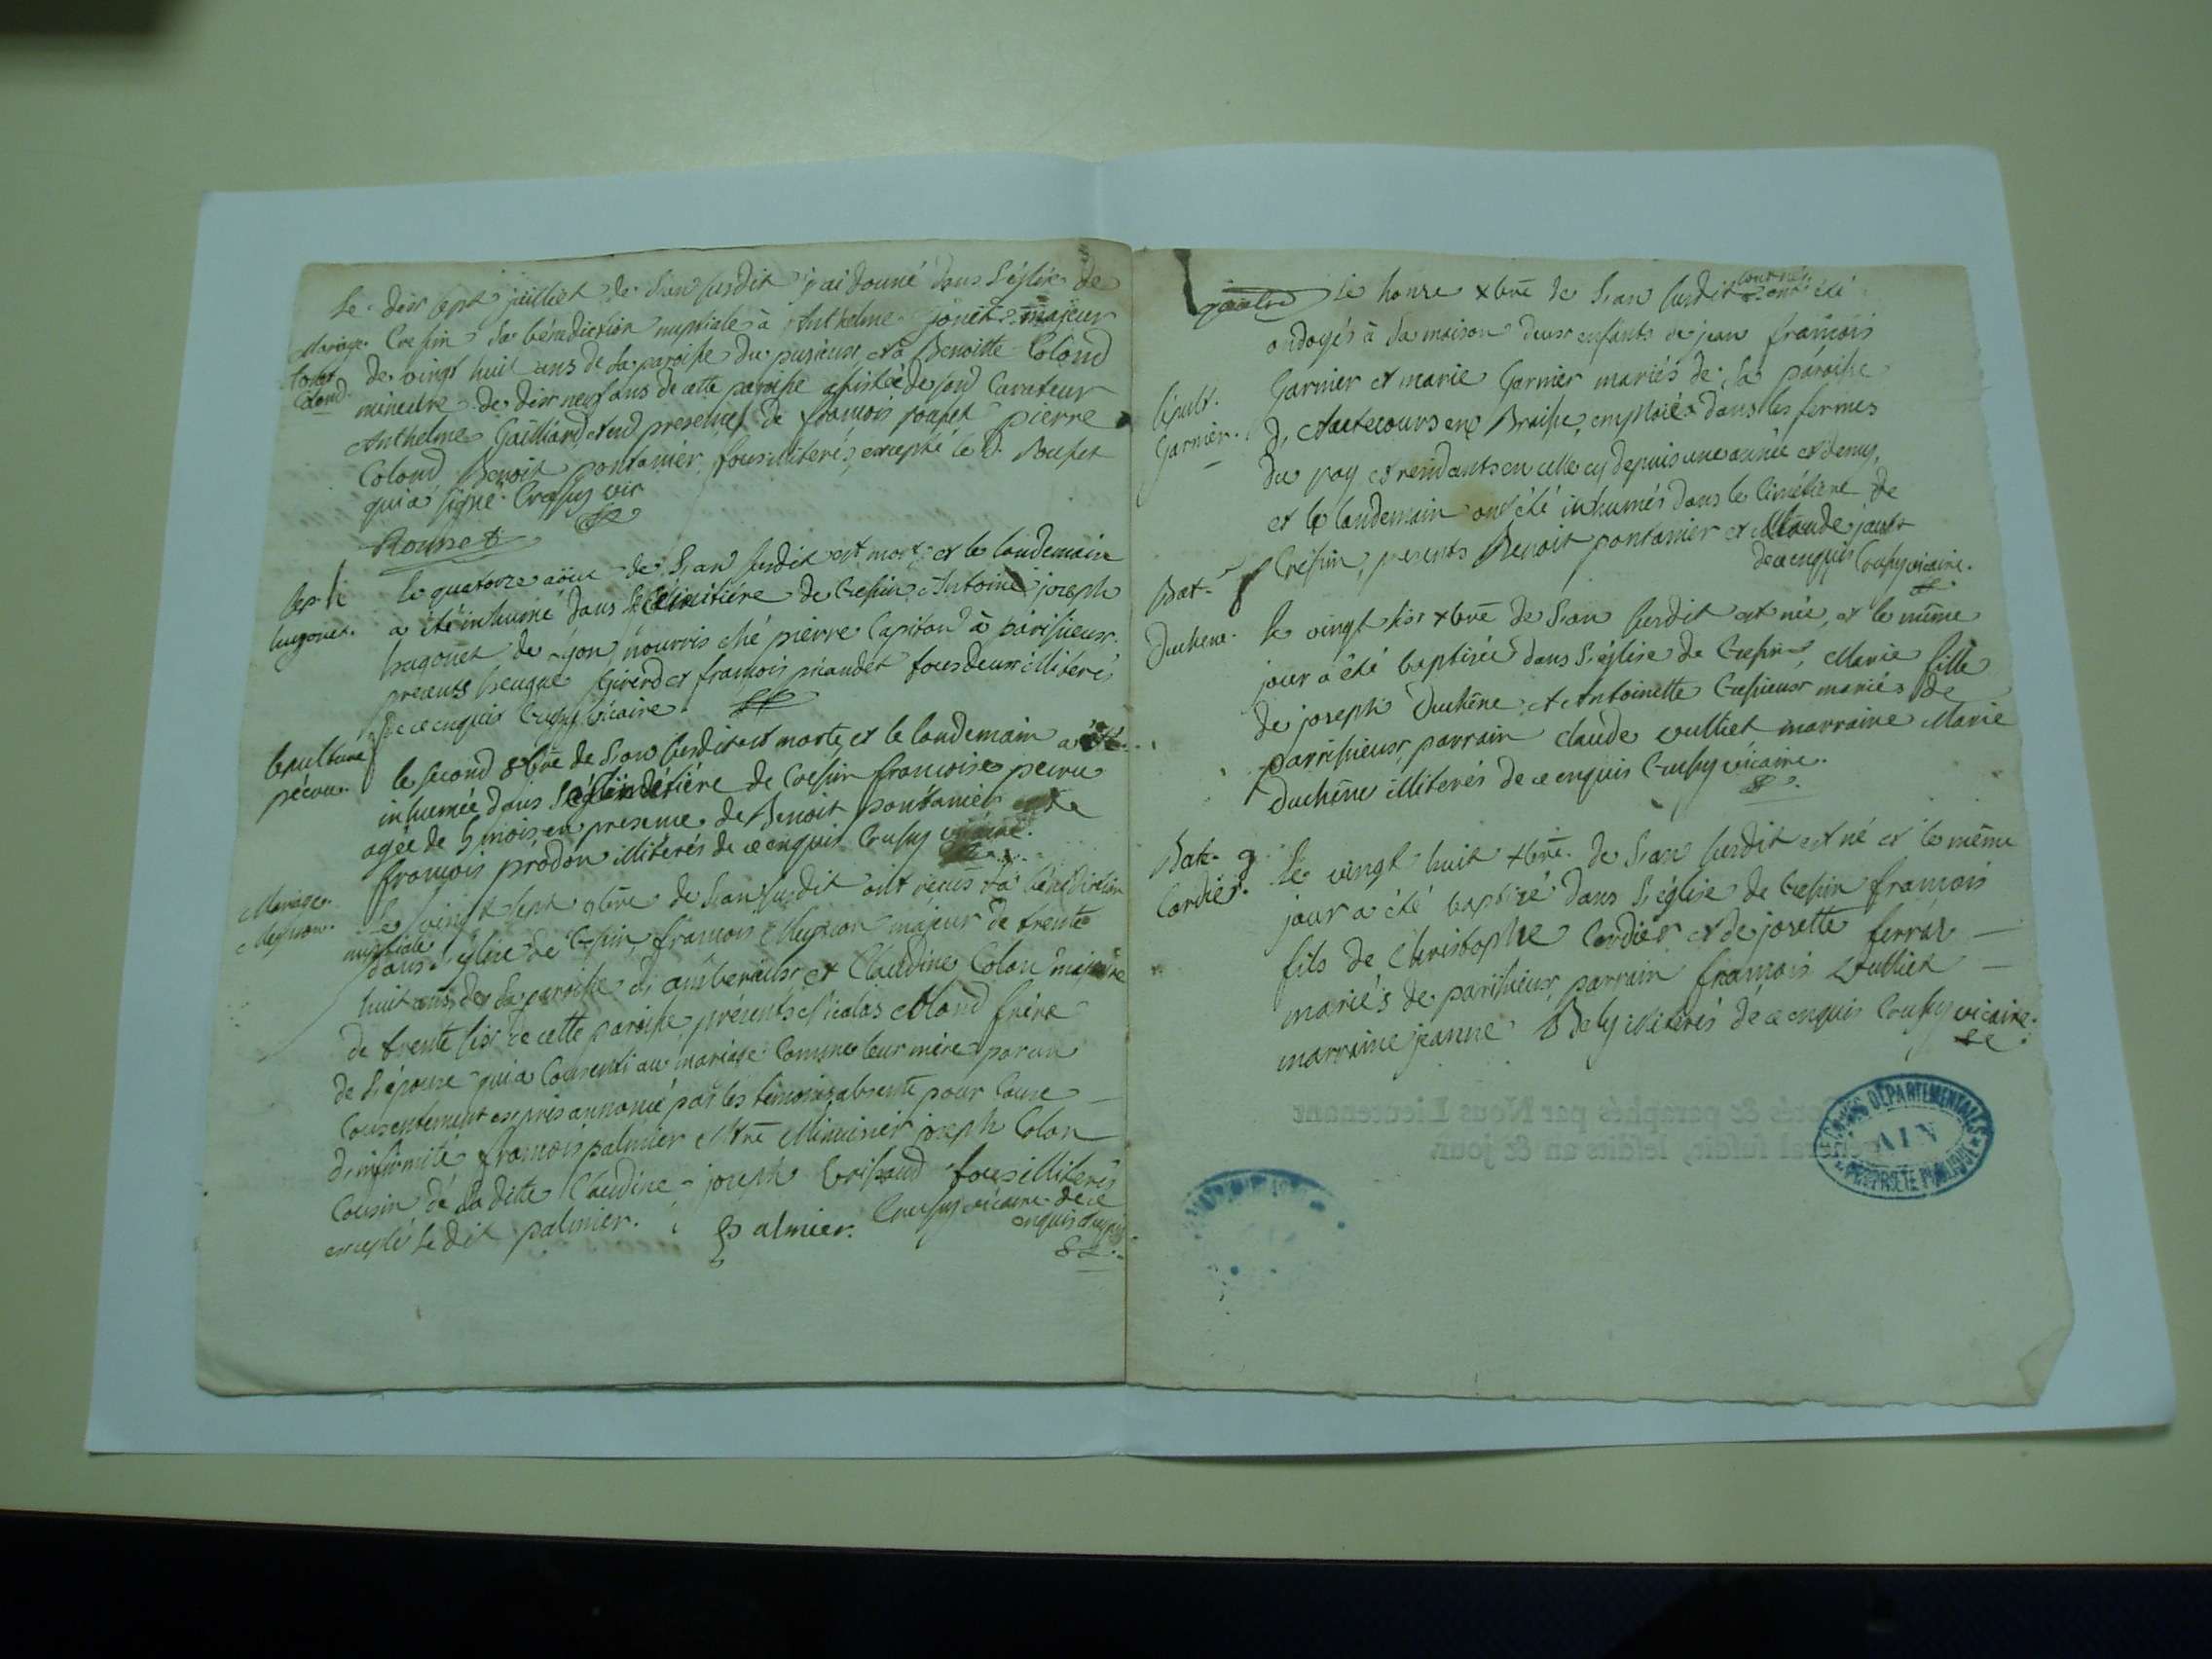 Le dix sept juilliet de l'an susdit j'ai donné dans l'église de
Mariage.
Crepin la bénédiction nuptiale à Anthelme Jonet majeur
Colond.
de vingt huit ans de la paroisse du et à Benoitte Colond
mineure de dix neuf ans de cette paroisse assistée de son Curateur
Anthelme Gailliard et en presence de françois pierre
Colond Benoit pontanier, tous illiterés excepté le d.
qui a signé Crassy vic
Rousset
Sep.
le quatorze aôut de l'an susdit est mort, et le landemain
hugonet.
a été inhumé dans le Cimitiére de Crepin Antoine joseph
hugonet de Lyon, nourris ché pierre Capitan à parisieux.
presents et françois tous deux illiterés
de ce enquis vicaire.
Sepulture
le second 8bre de l'an susdit est morte et le landemain a été
pécou.
inhumée dans le de Crepin françoise pecou
agée de 5 mois en presence de Benoit pontanier et de
françois prodon illiterés de ce enquis vicaire.
Mariage.
Le vingt sept 9bre de l'an susdit ont reçus la bénédiction
nuptiale
dans l'église de Crepin françois majeur de trente
huit ans de la paroisse d'amberieux et Claudine Colon majeure
de trente six de cette paroisse, présents Nicolas Colond frère
de l'épouse qui a Consenti au mariage Comme leur mère par un
Consentement exprès annoncé par les témoins absente pour Cause
d'infirmité françois palmier Mtre Menuisier joseph Colon
Cousin de la ditte Claudine joseph Brissaud tous illiterés
excepté le dit palmier.
Palmier.
vicaire de ce
enquis
Le honze xbre de l'an susdit ont été
ondoyés à la maison deux enfants de jean françois
Sepult.
Garnier et marie Garnier mariés de la paroisse
Garnier.
d'hautecour en Bresse, emploiés dans les fermes
du pay et residants en celle cy depuis une année et demy,
et le landemain ont été inhumés dans le Cimétiere de
Crepin, presents Benoit pontanier et Claude
de ce enquis vicaire.
Bat.
Duchene.
le vingt six xbre de l'an susdit est née, et le même
jour a été baptisée dans l'église de Crepin Marie fille
de joseph Duchêne et Antoinette mariés de
parisieux, parrain claude vulliet marraine Marie
Duchêne illiterés de ce enquis vicaire.
Bat. 9
Cordier.
Le vingt huit xbre de l'an susdit est né et le même
jour a été baptisé dans l'église de Crepin françois
fils de Christophe Cordier et de josette ferraz
mariés de parisieux, parrain françois vulliet
marraine jeanne Bely illiterés de ce enquis vicaire.
ARCHIVES DÉPARTEMENTALES
AIN
PROPRIÉTÉ PUBLIQUE